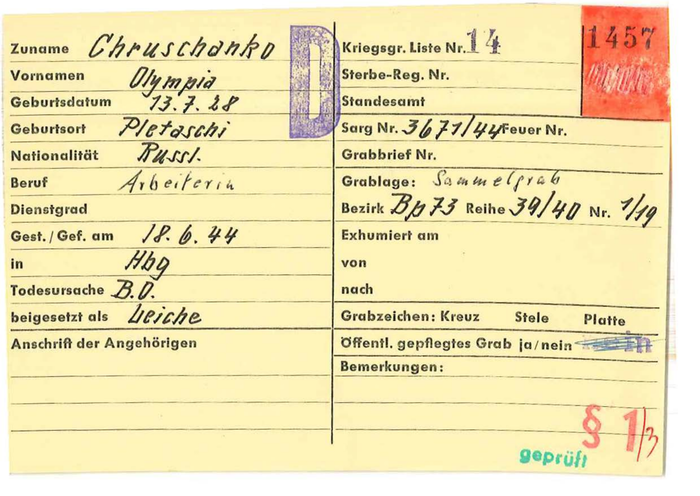 Zuname Chruschanko
Vornamen Olympia
Geburtsdatum 13.7.28
Geburtsort Pletaschi
Nationalität Russl.
Beruf Arbeiterin
Dienstgrad
Gest./Gef. am 18.6.44
in Hbg
Todesursache B.O.
beigesetzt als Leiche
Anschrift der Angehörigen
D
Kriegsgr. Liste Nr. 14
1457
Sterbe-Reg. Nr.
Standesamt
Sarg Nr. 3671/44 Feuer Nr.
Grabbrief Nr.
Grablage: Sammelgrab
Bezirk Bp73 Reihe 39/40 Nr. 1/19
Exhumiert am
von
nach
Grabzeichen: Kreuz Stele Platte
Öffentl. gepflegtes Grab ja/nein
Bemerkungen:
§ 1/3
geprüft